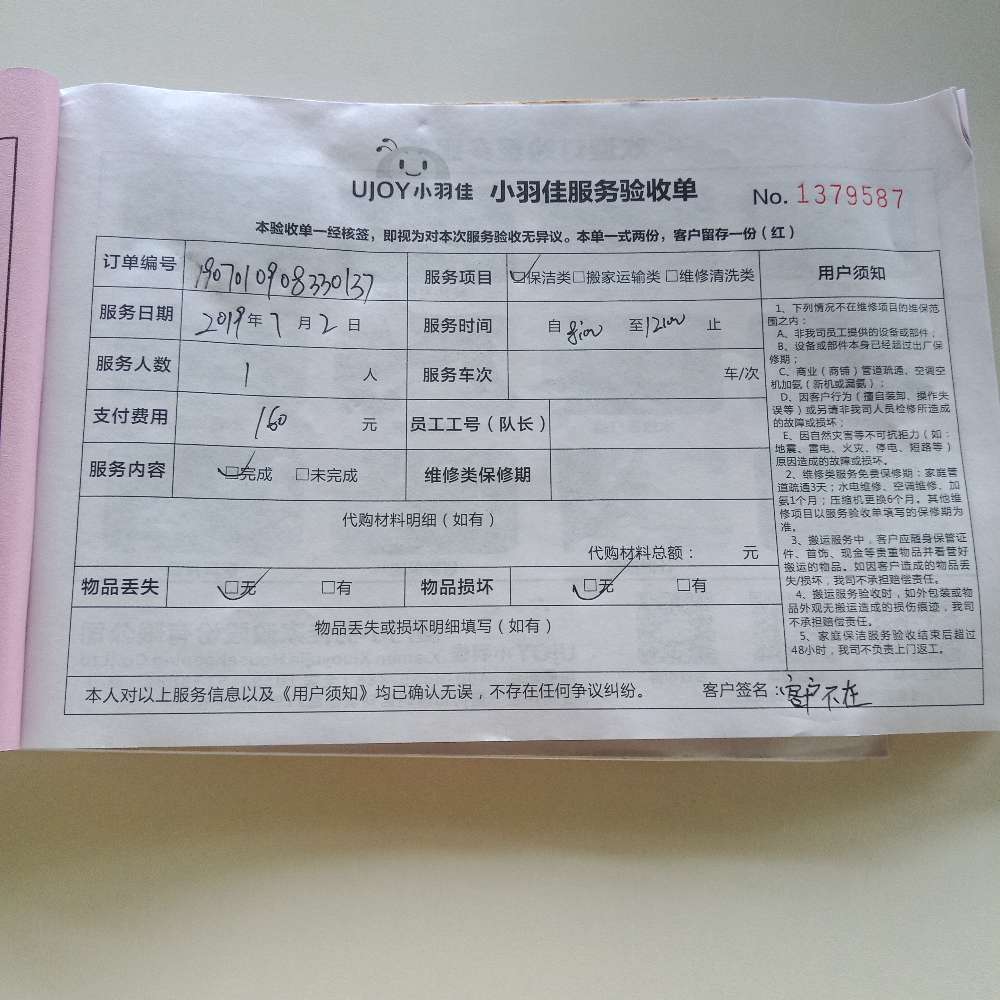 UJOY小羽佳 小羽佳服务验收单 No. 1379587
本验收单一经核签，即视为对本次服务验收无异议。本单一式两份，客户留存一份（红）
订单编号 1907010908330137 服务项目 □保洁类□搬家运输类 □维修清洗类
服务日期 2019年7月2日 服务时间 自 8:00 至12:00 止
服务人数 1 人 服务车次 车/次
支付费用 160 元 员工工号（队长）
服务内容 □完成 □未完成 维修类保修期
代购材料明细（如有）
代购材料总额： 元
物品丢失 □无 □有 物品损坏 □无 □有
物品丢失或损坏明细填写（如有）
用户须知
1、下列情况不在维修项目的维保范
围之内：
A、非我司员工提供的设备或部件；
B、设备或部件本身已经超过出厂保
修期；
C、商业（商铺）管道疏通、空调空
机加氨（新机或漏氨）；
D、因客户行为（擅自装卸、操作失
误等）或另请非我司人员检修所造成
的故障或损坏；
E、因自然灾害等不可抗拒力（如：
地震、雷电、火灾、停电、短路等）
原因造成的故障或损坏。
2、维修类服务免费保修期：家庭管
道疏通3天；水电维修、空调维修、加
氨1个月；压缩机更换6个月。其他维
修项目以服务验收单填写的保修期为
准。
3、搬运服务中，客户应随身保管证
件、首饰、现金等贵重物品并看管好
搬运的物品。如因客户造成的物品丢
失/损坏，我司不承担赔偿责任。
4、搬运服务验收时，如外包装或物
品外观无搬运造成的损伤痕迹，我司
不承担赔偿责任。
5、家庭保洁服务验收结束后超过
48小时，我司不负责上门返工。
本人对以上服务信息以及《用户须知》均已确认无误，不存在任何争议纠纷。 客户签名：客户不在